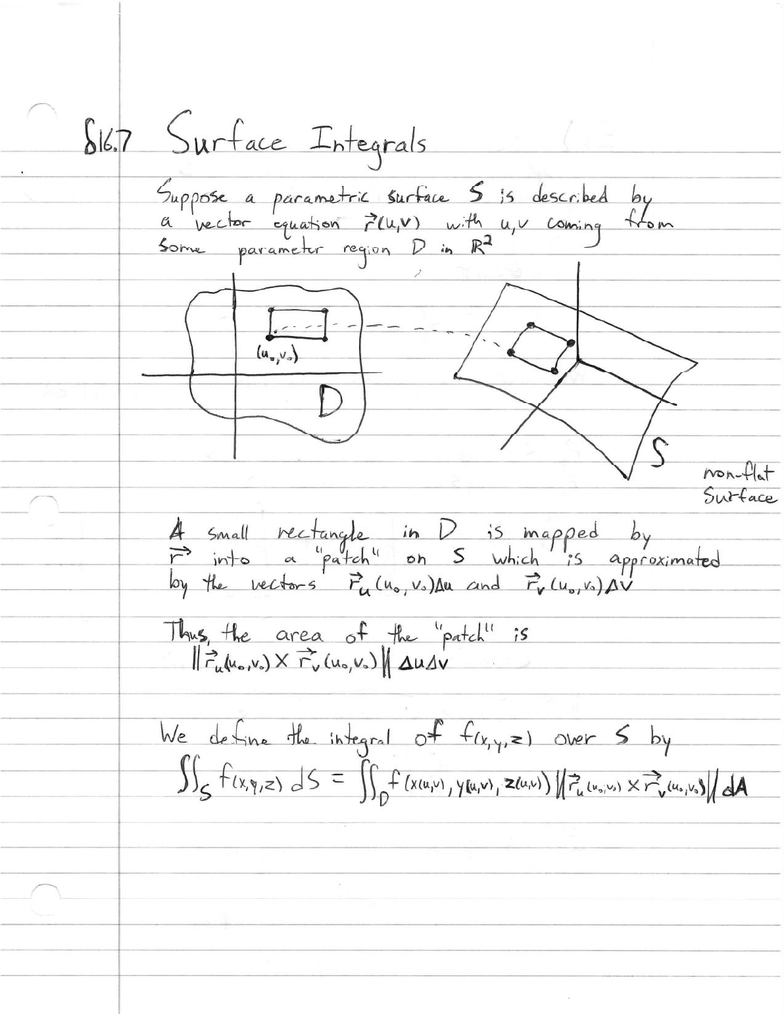 §16.7 Surface Integrals
Suppose a parametric surface S is described by
a vector equation r⃗(u,v) with u,v coming from
some parameter region D in ℝ²
(u₀,v₀)
D
S
non-flat
surface
A small rectangle in D is mapped by
r⃗ into a "patch" on S which is approximated
by the vectors r⃗ᵤ(u₀,v₀)Δu and r⃗ᵥ(u₀,v₀)Δv
Thus, the area of the "patch" is
‖r⃗ᵤ(u₀,v₀) × r⃗ᵥ(u₀,v₀)‖ ΔuΔv
We define the integral of f(x,y,z) over S by
∬_S f(x,y,z) dS = ∬_D f(x(u,v), y(u,v), z(u,v)) ‖r⃗ᵤ(u₀,v₀) × r⃗ᵥ(u₀,v₀)‖ dA